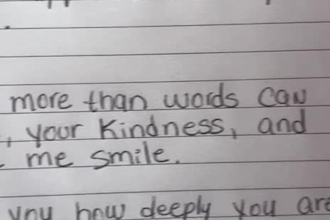 more than words can
, your kindness, and
me smile.
you how deeply you are